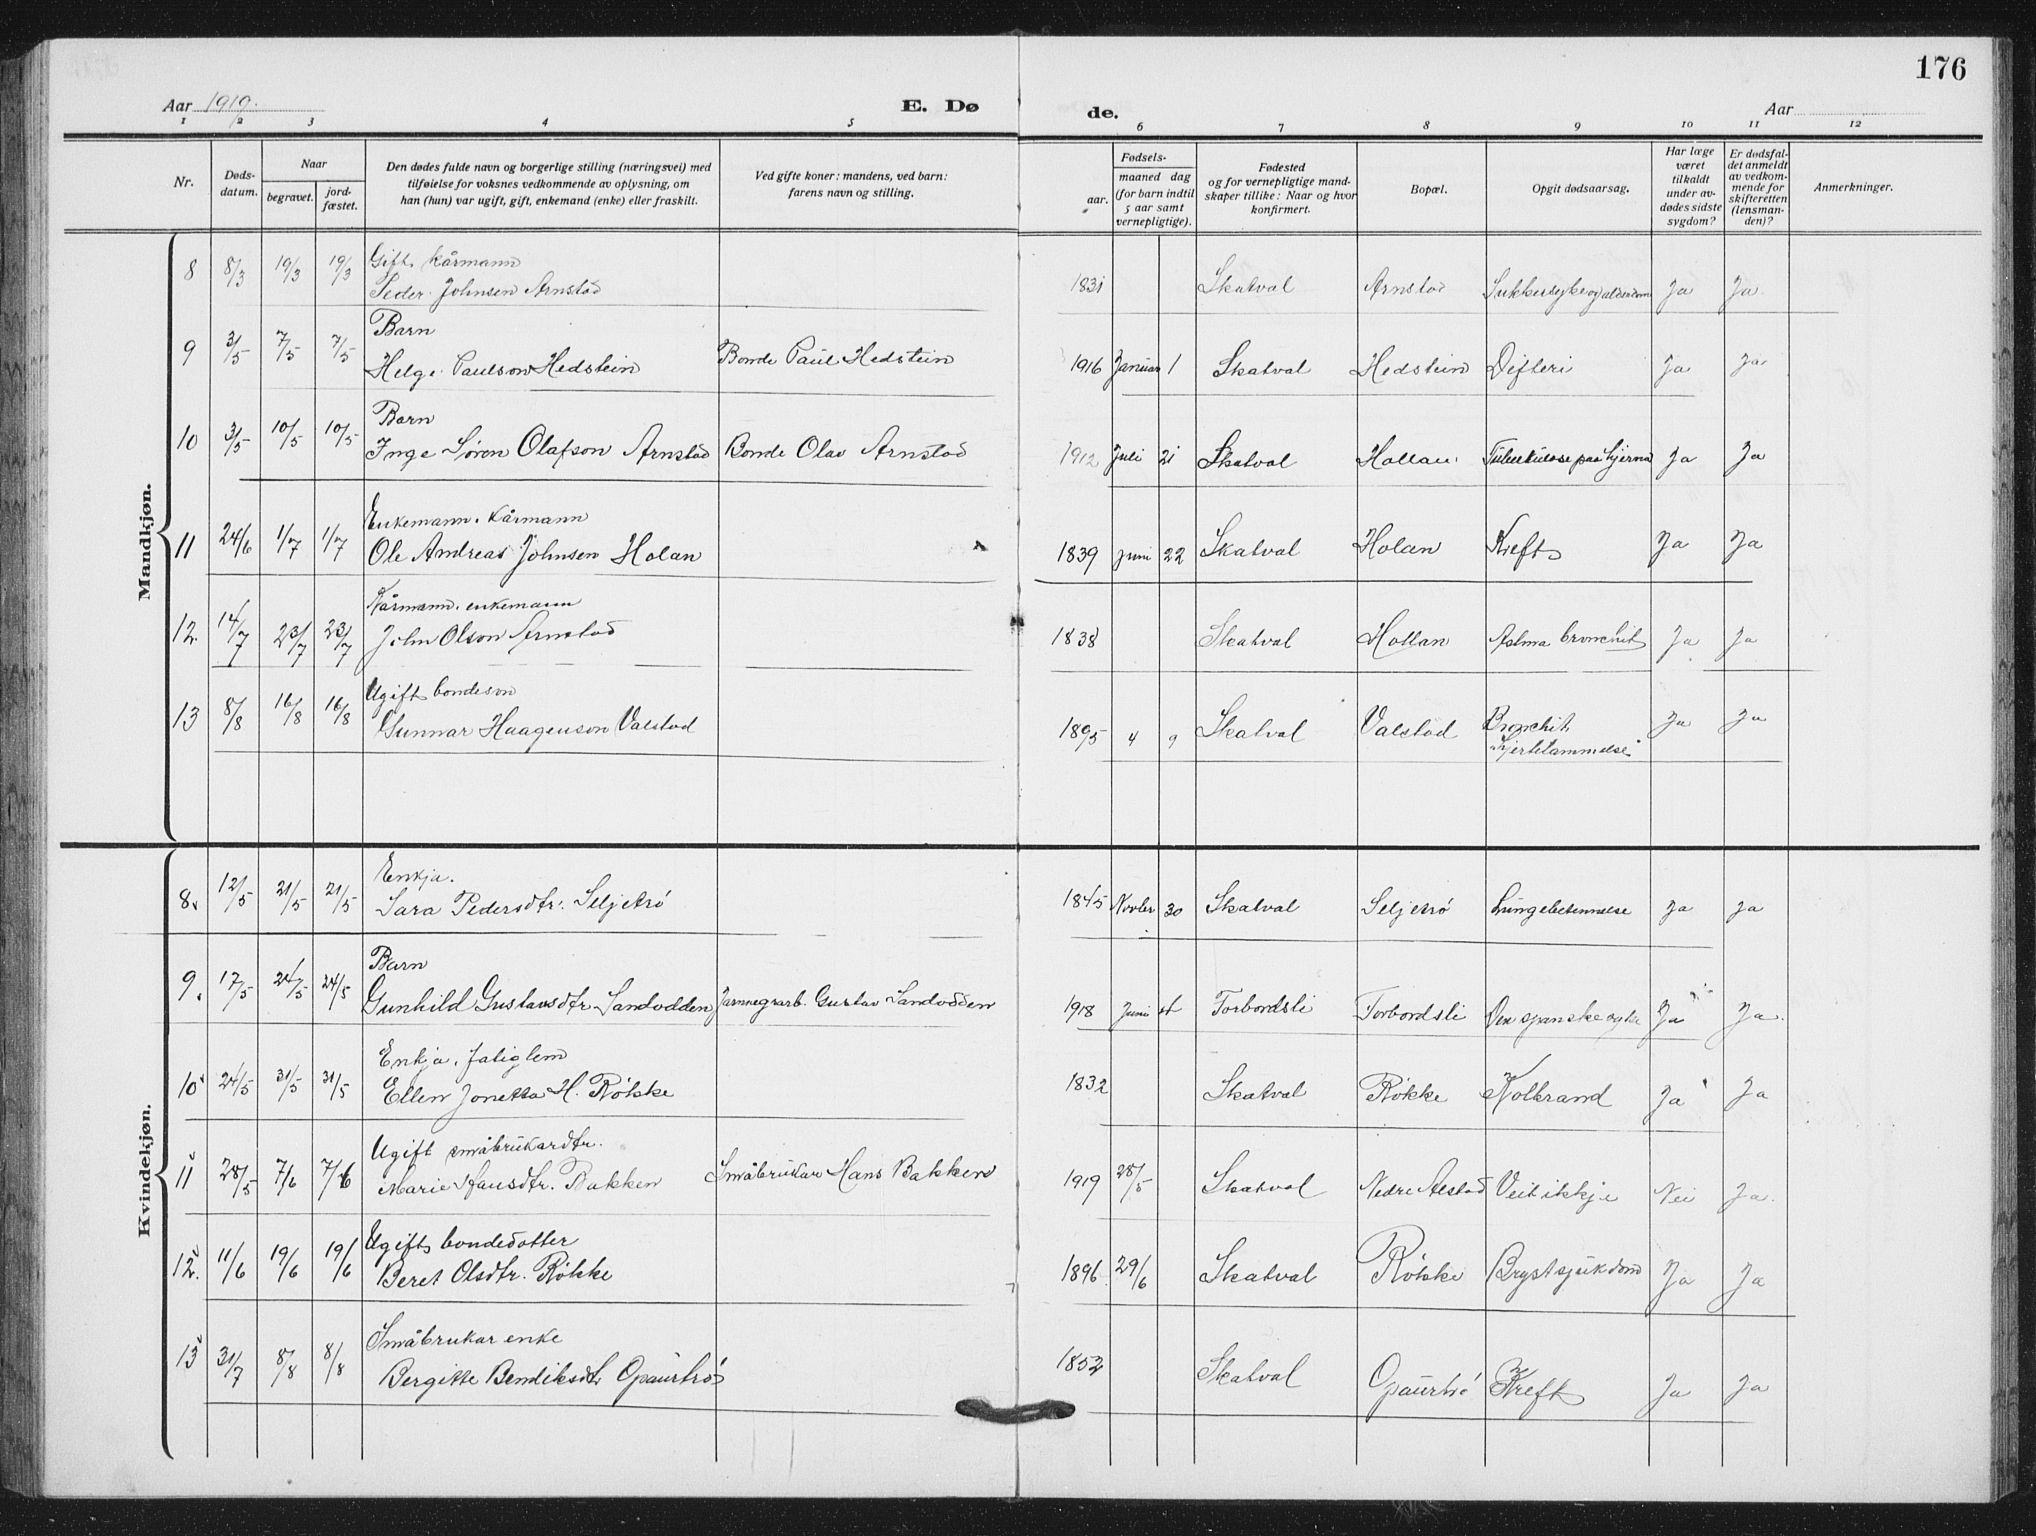 176
Aar 1919.
E. Dø de.
Aar
1 2 3 4 5 6 7 8 9 10 11 12
Nr.
Døds-
datum.
Naar
begravet.
jord-
fæstet.
Den dødes fulde navn og borgerlige stilling (næringsvei) med
tilføielse for voksnes vedkommende av oplysning, om
han (hun) var ugift, gift, enkemand (enke) eller fraskilt.
Ved gifte koner: mandens, ved barn:
farens navn og stilling.
Fødsels-
aar.
maaned dag
(for barn indtil
5 aar samt
vernepligtige).
Fødested
og for vernepligtige mand-
skaper tillike: Naar og hvor
konfirmert.
Bopæl.
Opgit dødsaarsag.
Har læge
været
tilkaldt
under av-
dødes sidste
sygdom?
Er dødsfal-
det anmeldt
av vedkom-
mende for
skifteretten
(lensman-
den)?
Anmerkninger.
Mandkjøn.
Gift, kårmann
8 8/3 19/3 19/3 Peder Johnsen Arnstad 1831 Skatval Arnstad Sukkersyke og alderdom Ja Ja.
Barn
9 3/5 7/5 7/5 Helge Paulson Hedstein Bonde Paul Hedstein 1916 Januar 1 Skatval Hedstein Difteri Ja Ja
Barn
10 3/5 10/5 10/5 Inge Søren Olafson Arnstad Bonde Olav Arnstad 1912 Juli 21 Skatval Hollan Tuberkulose paa hjerna Ja Ja
Enkemann. Kårmann
11 24/6 1/7 1/7 Ole Andreas Johnsen Holan 1839 Juni 22 Skatval Holan Kreft Ja Ja
Kårmann. enkemann
12. 14/7 23/7 23/7 John Olson Arnstad 1838 Skatval Hollan Astma bronchit Ja Ja
Ugift bondeson
13 8/8 16/8 16/8 Gunnar Haagenson Valstad 1895 4 9 Skatval Valstad Bronchit Ja Ja
Hjertelammelse
Kvindekjøn.
Enkja.
8. 12/5 21/5 21/5 Sara Pedersdtr. Seljetrø 1845 Novbr 30 Skatval Seljetrø Lungebetennelse Ja Ja
Barn
9. 17/5 24/5 24/5 Gunhild Gustavsdtr Sandodden Gustav Sandodden 1918 Juni Forbordsli Forbordsli Den spanske syke Ja Ja.
Enkja.
10 24/5 31/5 31/5 Ellen Jonetta H. Røkke 1832 Skatval Røkke Kolbrand Ja Ja
Ugift småbrukardtr.
11 28/5 7/6 7/6 Marie Hansdtr. Bakken Småbrukar Hans Bakken 1919 28/5 Skatval Nedre Alstad Veit ikkje Nei Ja.
Ugift bondedotter
12. 11/6 19/6 19/6 Beret Olsdtr. Røkke 1896 29/6 Skatval Røkke Brystsjukdom Ja Ja
Småbrukar enke
13 31/7 8/8 8/8 Bergitte Bendiksdtr Opaurtrø 1852 Skatval Opaurtrø Kreft Ja Ja